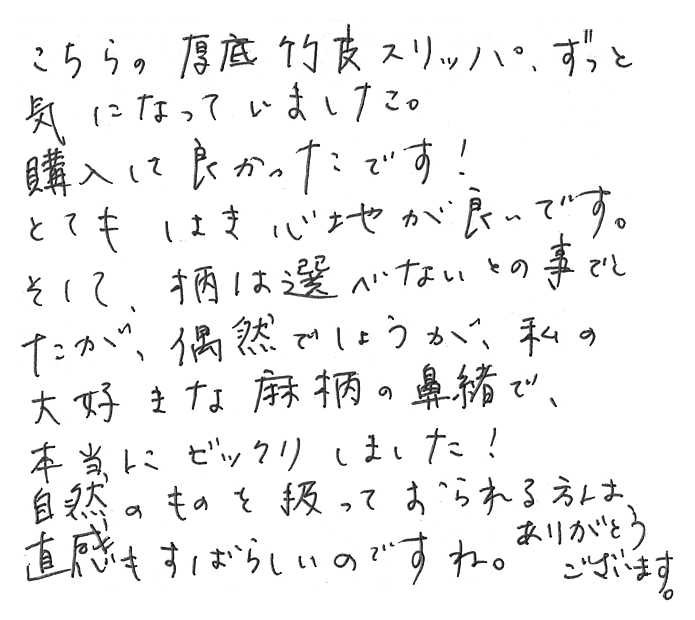 こちらの厚底竹皮スリッパ、ずっと
気になっていました。
購入して良かったです！
とてもはき心地が良いです。
そして、柄は選べないとの事でし
たが、偶然でしょうが、私の
大好きな麻柄の鼻緒で、
本当にビックリしました！
自然のものを扱っておられる方は
直感もすばらしいのですね。
ありがとう
ございます。